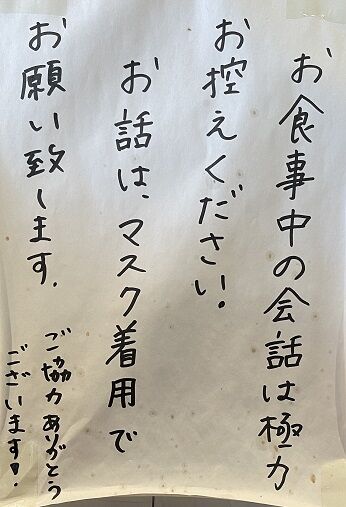 お食事中の会話は極力
お控えください。
お話は、マスク着用で
お願い致します。
ご協力ありがとう
ございます!